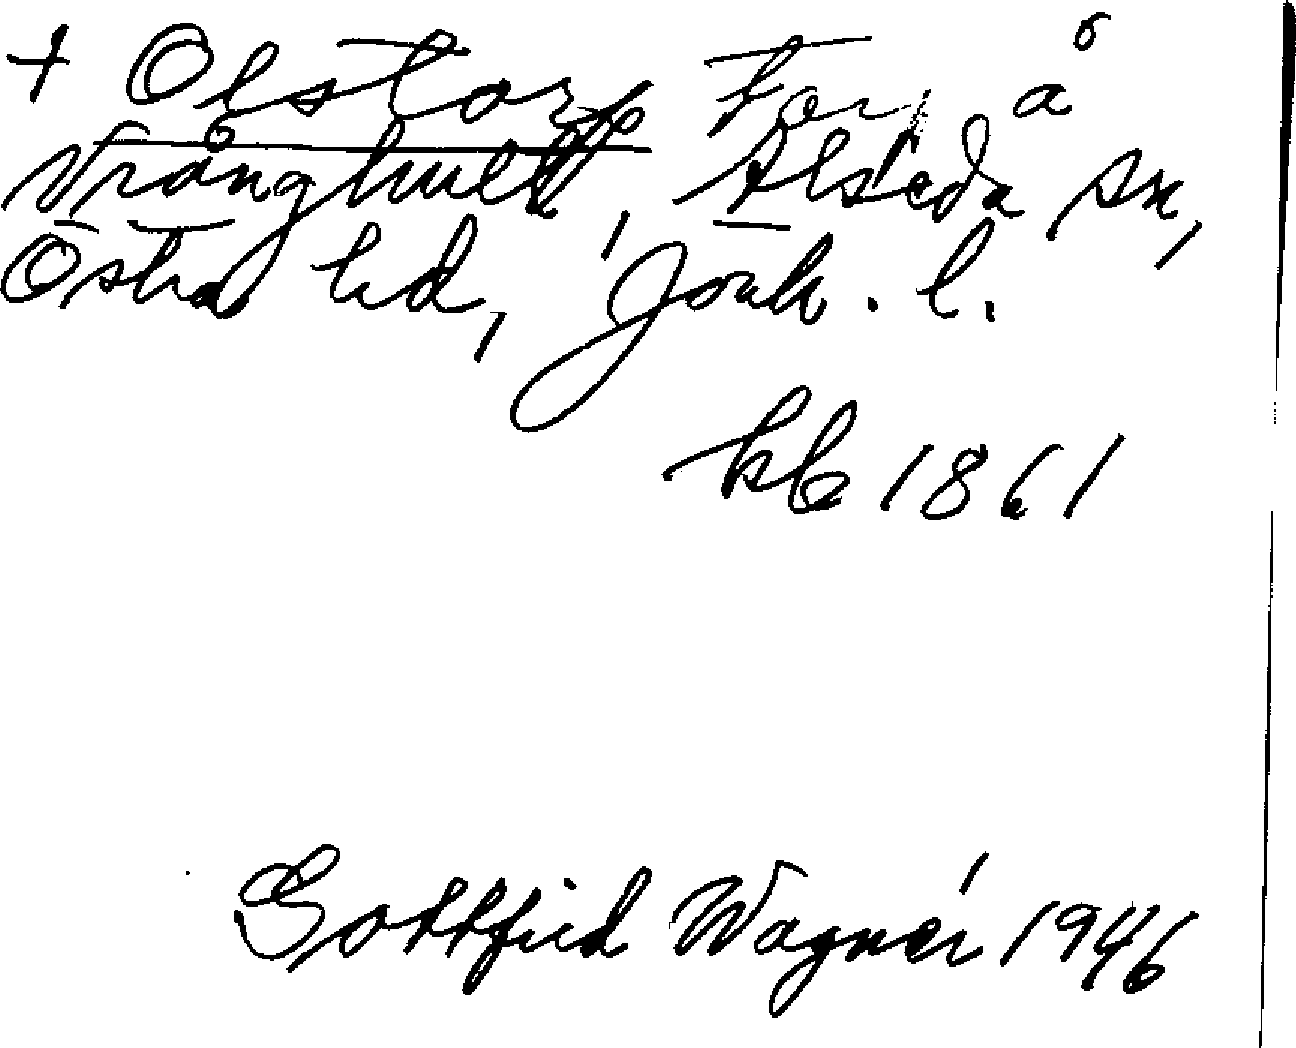 + Olstorp, Torp å
Vrånghult, Alseda sn,
Östra hd, Jönk. l.
kb 1861
Gottfrid Wagnér 1946